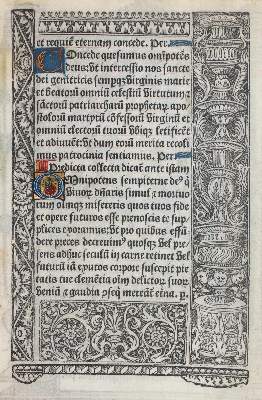 et requiē eternam concede. Per
COncede quesumus omnipotēs
deus: vt intercessio nos sancte
dei genitricis semperqȝ virginis marie
et beatorū omniū celestiū virtutum: et
sāctorū patriarcharū prophetarū apo-
stolorū martyrū cōfessorū virginū et
omniū electorū tuorū vbiqȝ letificet
et adiuuet: vt dum eorū merita recoli
mus patrocinia sentiamus. Per
Predicta collecta dicať ante istam
OMnipotens sempiterne de⁹ q̇
viuorū dn̄aris simul et mortuo
rum omniūqȝ misereris quos tuos fide
et opere futuros esse prenoscis te sup
plices exoramus: vt pro quibus effū
dere preces decreuim⁹ quosqȝ vel pre
sens adhuc seculū in carne retinet vel
futurū iā exutos corpore suscepit pie
tatis tue clemētia oīm delictorū suorū
veniā et gaudia